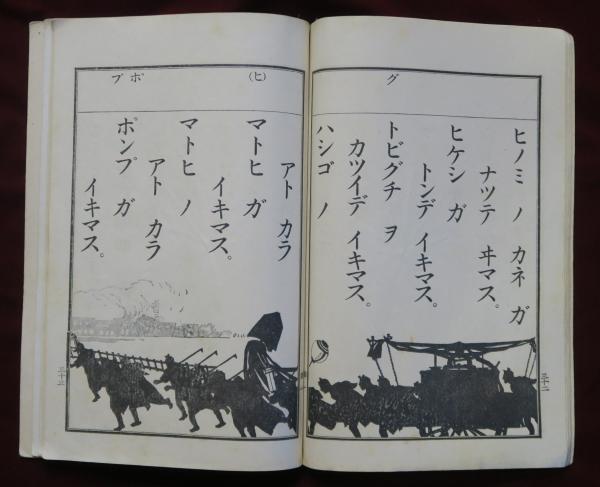 グ
ヒノミ ノ カネ ガ
ナツテ ヰマス。
ヒケシ ガ
トンデ イキマス。
トビグチ ヲ
カツイデ イキマス。
ハシゴ ノ
三十二
(ヒ)
ポプ
アト カラ
マトヒ ガ
イキマス。
マトヒ ノ
アト カラ
ポンプ ガ
イキマス。
三十三